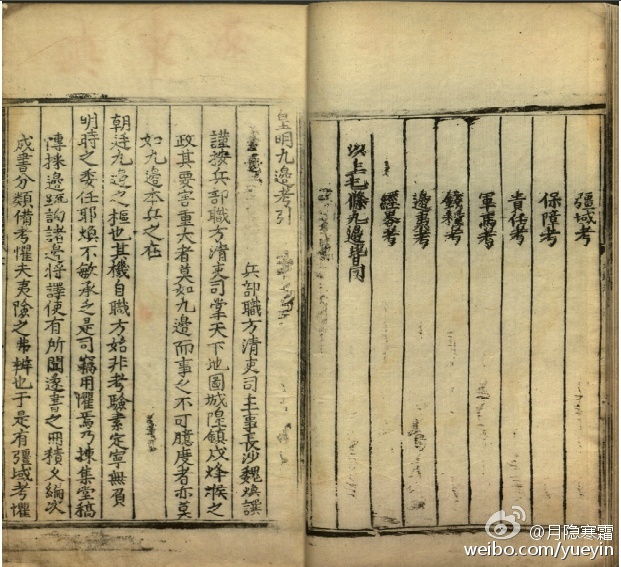 疆域考
保障考
責任考
軍馬考
錢糧考
邊夷考
經畧考
以上七條九邊皆同
皇明九邊考引
兵部職方清吏司主事長沙魏煥譔
謹按兵部職方清吏司掌天下地圖城隍鎮戍烽堠之
政其要害重大者莫如九邊而事之不可臆度者亦莫
如九邊本兵之在
朝廷九邊之樞也其機自職方始非考驗素定寧無負
明時之委任耶煥不敏承乏是司竊用懼焉乃揀集堂稿
博採邊疏詢諸邊將譯使有所聞遂書之冊積久編次
成書分類備考懼夫夷險之弗辨也于是有疆域考懼
@月隐寒霜
weibo.com/yueyin